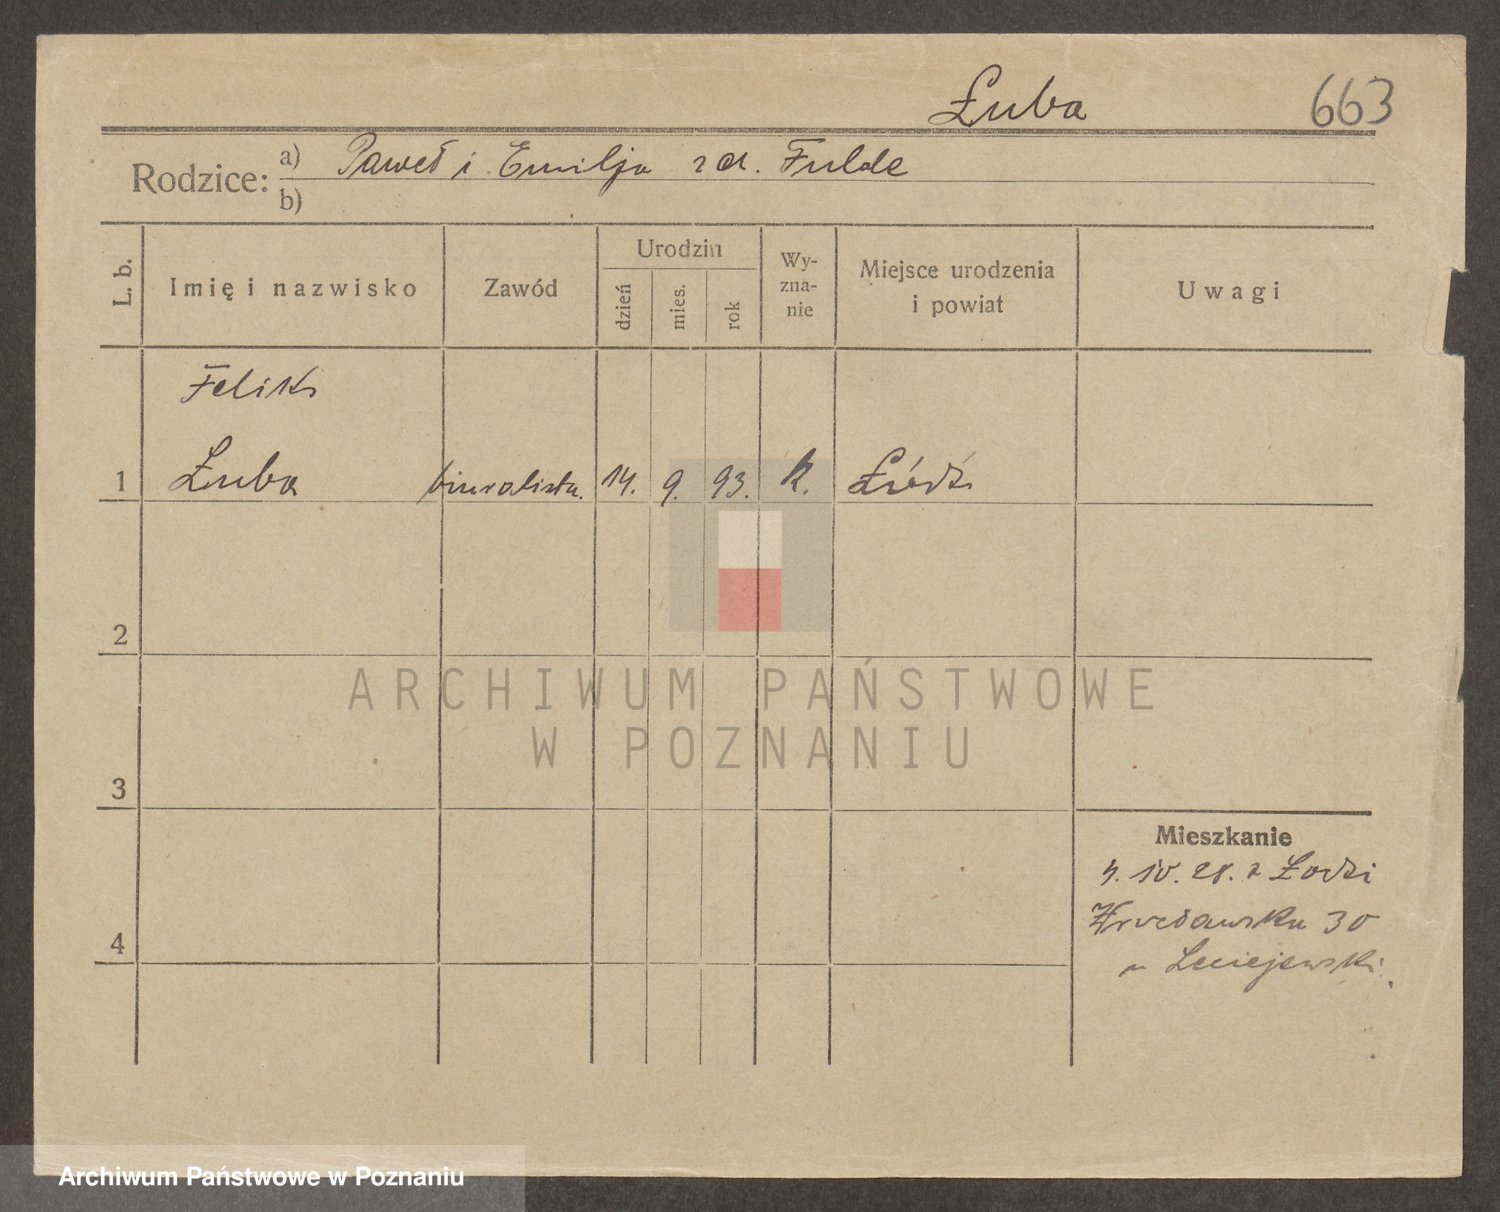 Łuba 663
Rodzice: a) Paweł i Emilja zd. Fulde
b)
L. b. Imię i nazwisko Zawód Urodzin dzień mies. rok Wy-zna-nie Miejsce urodzenia i powiat Uwagi
Feliks
1 Łuba biuralista. 14. 9. 93. k. Łódź
2
ARCHIWUM PAŃSTWOWE
W POZNANIU
3
Mieszkanie
10. 28. z Łodzi
4 Wrocławska 30
Leciejewski
Archiwum Państwowe w Poznaniu